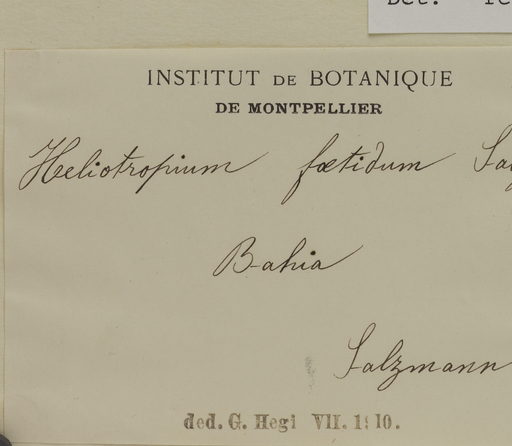 Det.
INSTITUT DE BOTANIQUE
DE MONTPELLIER
Heliotropium fœtidum
Bahia
Salzmann
ded. G. Hegi VII. 1910.